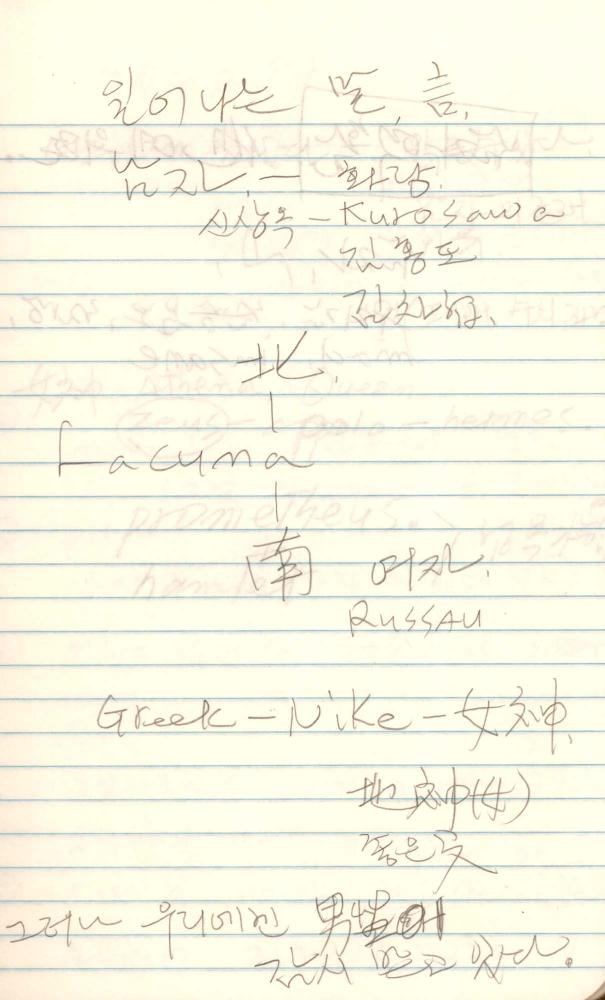 일어나는 말, 음.
남자. — 화랑.
신상옥 — Kurosawa
김홍도
北.
|
Lacuna
|
南 여자.
RUSSAU
Greek — Nike — 女神.
地神(女)
좋은
그러나 우리에겐 男性이
감시 받고 있다.